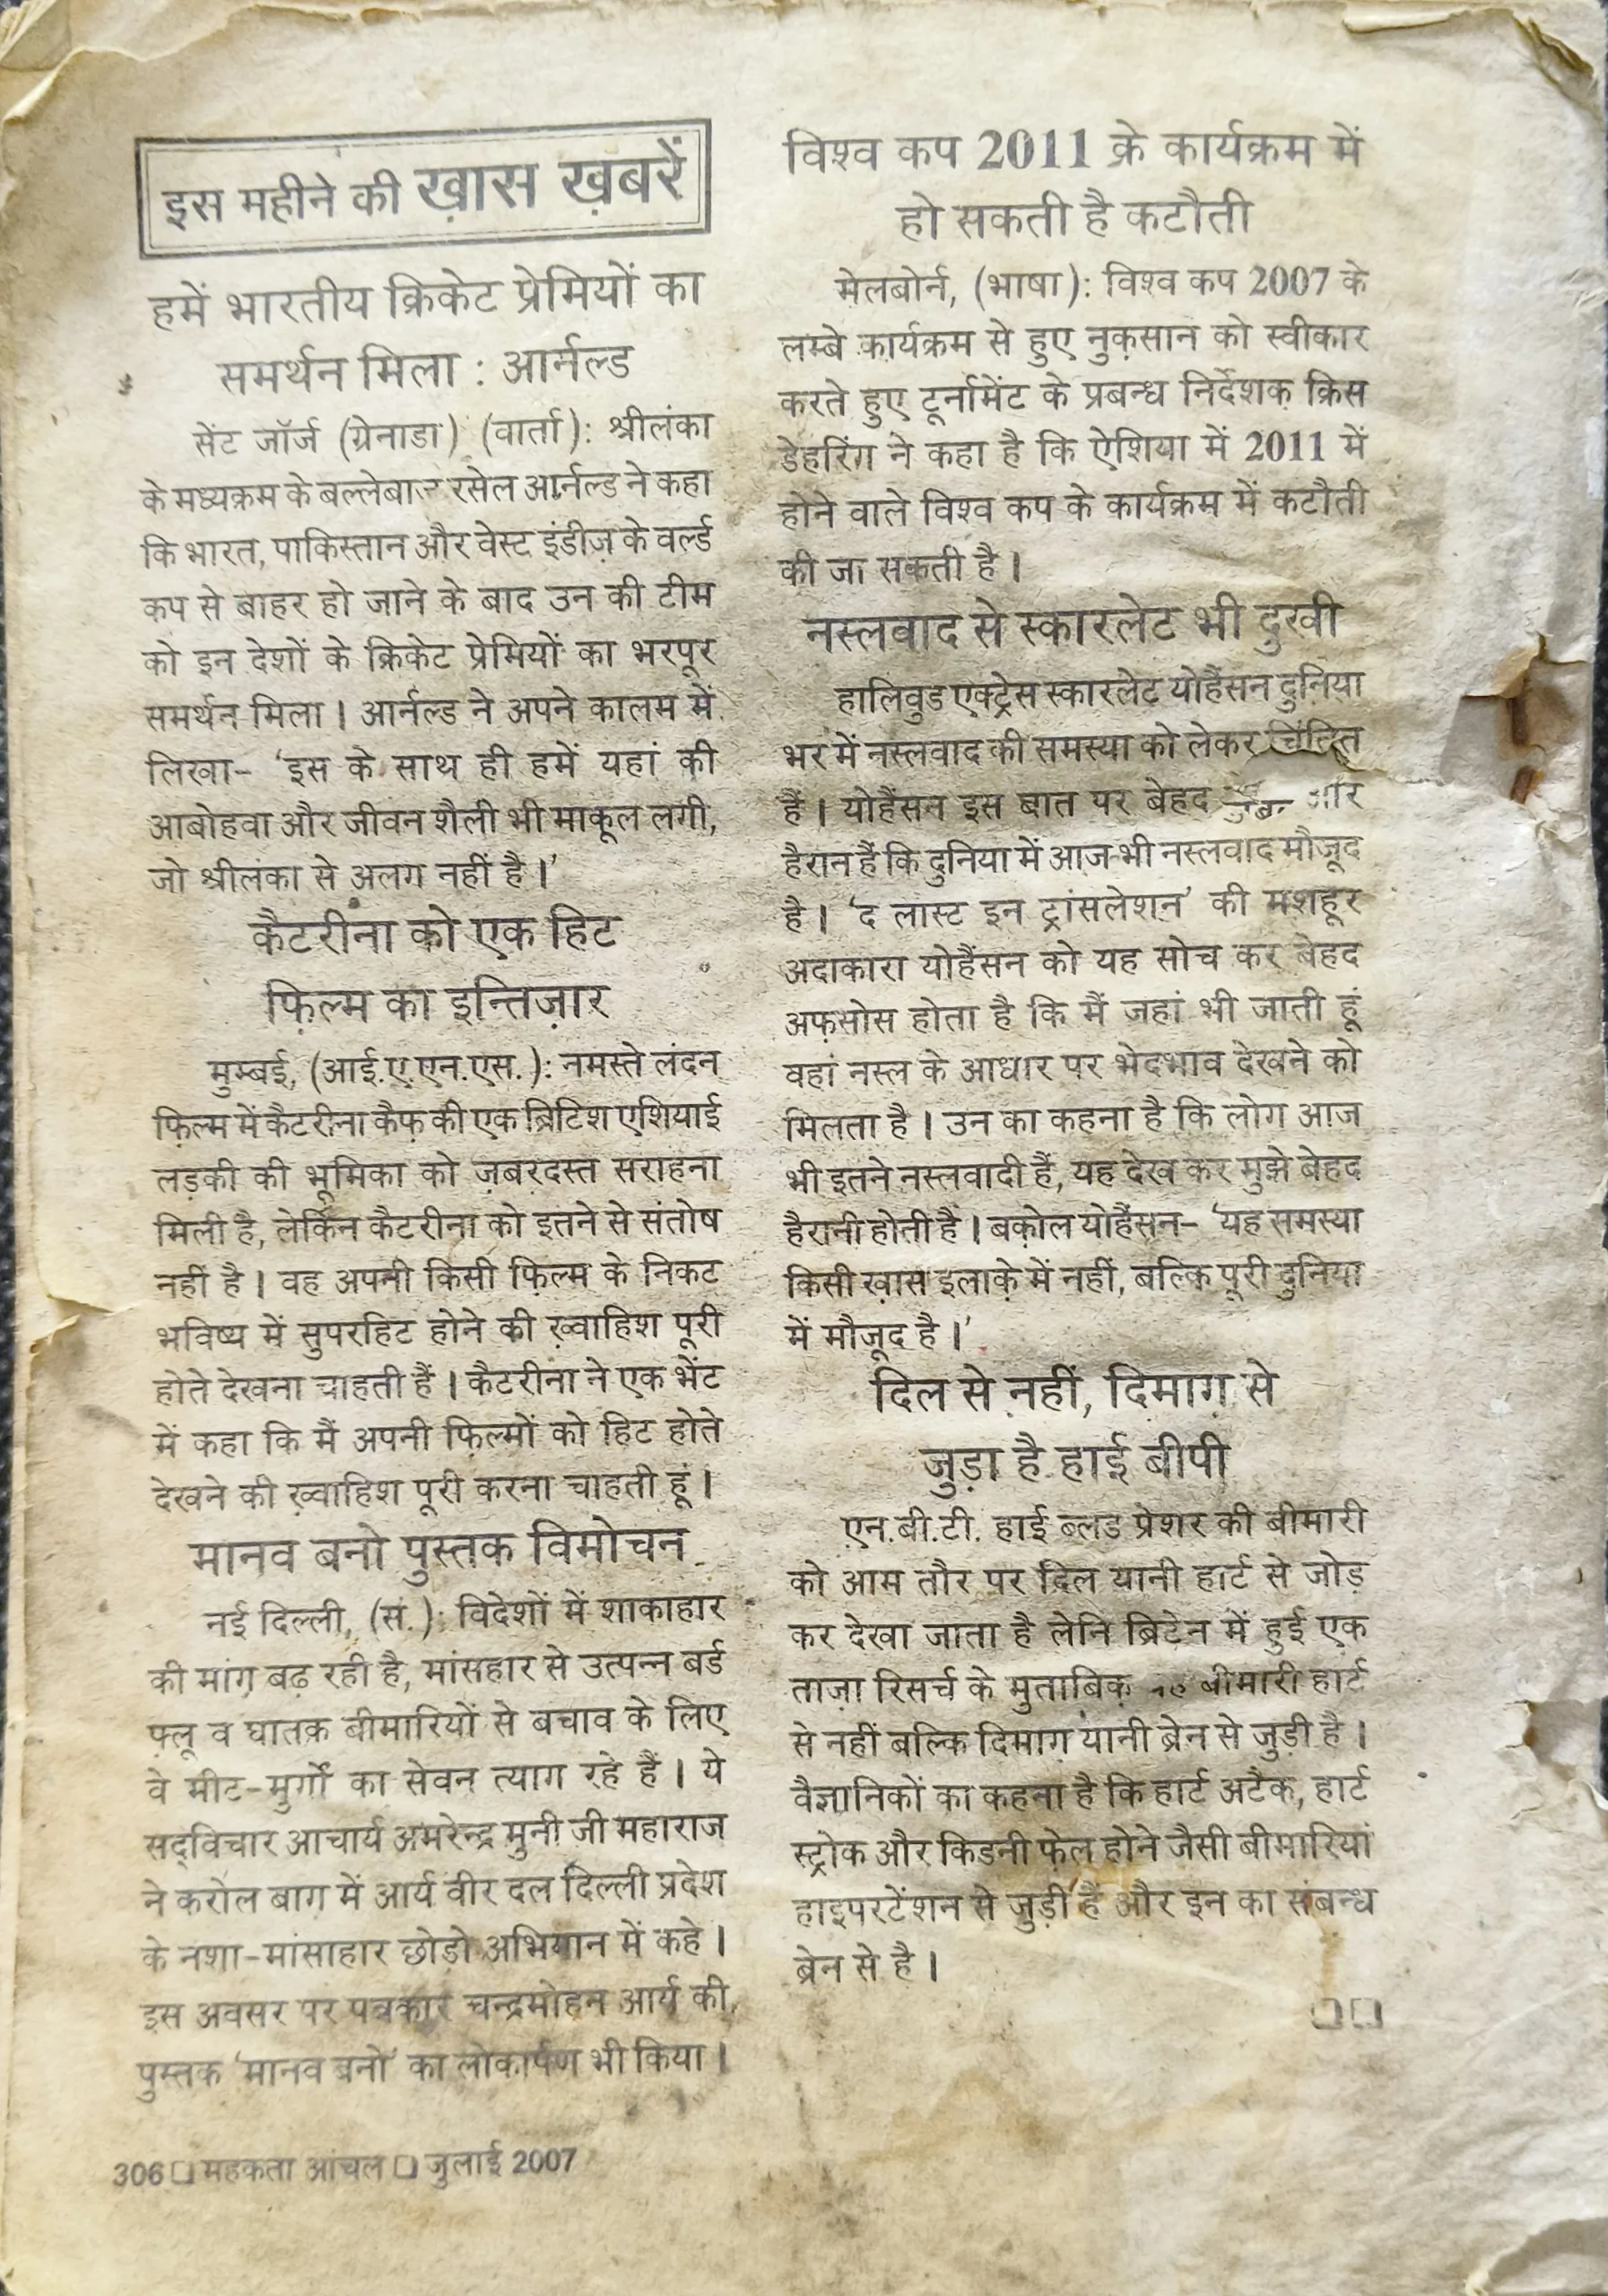 इस महीने की ख़ास ख़बरें
हमें भारतीय क्रिकेट प्रेमियों का
समर्थन मिला : आर्नल्ड
सेंट जॉर्ज (ग्रेनाडा) (वार्ता): श्रीलंका
के मध्यक्रम के बल्लेबाज रसेल आर्नल्ड ने कहा
कि भारत, पाकिस्तान और वेस्ट इंडीज़ के वर्ल्ड
कप से बाहर हो जाने के बाद उन की टीम
को इन देशों के क्रिकेट प्रेमियों का भरपूर
समर्थन मिला। आर्नल्ड ने अपने कालम में
लिखा- 'इस के साथ ही हमें यहां की
आबोहवा और जीवन शैली भी माकूल लगी,
जो श्रीलंका से अलग नहीं है।'
कैटरीना को एक हिट
फ़िल्म का इन्तिज़ार
मुम्बई, (आई.ए.एन.एस.): नमस्ते लंदन
फ़िल्म में कैटरीना कैफ़ की एक ब्रिटिश एशियाई
लड़की की भूमिका को ज़बरदस्त सराहना
मिली है, लेकिन कैटरीना को इतने से संतोष
नहीं है। वह अपनी किसी फ़िल्म के निकट
भविष्य में सुपरहिट होने की ख़्वाहिश पूरी
होते देखना चाहती हैं। कैटरीना ने एक भेंट
में कहा कि मैं अपनी फ़िल्मों को हिट होते
देखने की ख़्वाहिश पूरी करना चाहती हूं।
मानव बनो पुस्तक विमोचन
नई दिल्ली, (सं.): विदेशों में शाकाहार
की मांग बढ़ रही है, मांसहार से उत्पन्न बर्ड
फ़्लू व घातक़ बीमारियों से बचाव के लिए
वे मीट-मुर्गों का सेवन त्याग रहे हैं। ये
सद्विचार आचार्य अमरेन्द्र मुनी जी महाराज
ने करोल बाग़ में आर्य वीर दल दिल्ली प्रदेश
के नशा-मांसाहार छोडो अभियान में कहे।
इस अवसर पर पत्रकार चन्द्रमोहन आर्य की
पुस्तक 'मानव बनो' का लोकार्पण भी किया।
306 □ महकता आंचल □ जुलाई 2007
विश्व कप 2011 के कार्यक्रम में
हो सकती है कटौती
मेलबोर्न, (भाषा): विश्व कप 2007 के
लम्बे कार्यक्रम से हुए नुक़सान को स्वीकार
करते हुए टूर्नामेंट के प्रबन्ध निर्देशक क्रिस
डेहरिंग ने कहा है कि ऐशिया में 2011 में
होने वाले विश्व कप के कार्यक्रम में कटौती
की जा सकती है।
नस्लवाद से स्कारलेट भी दुखी
हालिवुड एक्ट्रेस स्कारलेट योहैंसन दुनिया
भर में नस्लवाद की समस्या को लेकर चिंतित
हैं। योहैंसन इस बात पर बेहद और
हैरान हैं कि दुनिया में आज भी नस्लवाद मौजूद
है। 'द लास्ट इन ट्रांसलेशन' की मशहूर
अदाकारा योहैंसन को यह सोच कर बेहद
अफ़सोस होता है कि मैं जहां भी जाती हूं
वहां नस्ल के आधार पर भेदभाव देखने को
मिलता है। उन का कहना है कि लोग आज
भी इतने नस्लवादी हैं, यह देख कर मुझे बेहद
हैरानी होती है। बक़ोल योहैंसन- 'यह समस्या
किसी ख़ास इलाक़े में नहीं, बल्कि पूरी दुनिया
में मौजूद है।'
दिल से नहीं, दिमाग़ से
जुड़ा है हाई बीपी
एन.बी.टी. हाई ब्लड प्रेशर की बीमारी
को आम तौर पर दिल यानी हार्ट से जोड़
कर देखा जाता है लेनि ब्रिटेन में हुई एक
ताज़ा रिसर्च के मुताबिक़ बीमारी हार्ट
से नहीं बल्कि दिमाग़ यानी ब्रेन से जुड़ी है।
वैज्ञानिकों का कहना है कि हार्ट अटैक, हार्ट
स्ट्रोक और किडनी फ़ेल होने जैसी बीमारियां
हाइपरटेंशन से जुड़ी हैं और इन का संबन्ध
ब्रेन से है।
□□